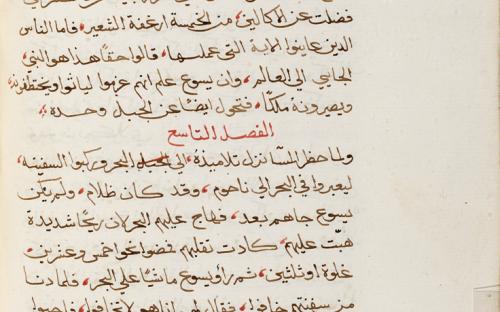 فضلت عن الاكالين، من الخمسة ارغفة الشعير، فاما الناس
الذين عاينوا الاية التي عملها، قالوا حقا هذا هو النبي
الجاءي الي العالم، وان يسوع علم انهم عزموا لياتوا ويختطفونه
ويصيرونه ملكًا، فتحول ايضًا عن الجبل وحده
الفصل التاسع
ولما حظر المسآ نزل تلاميذه، الي البحر وركبوا السفينه
ليعبروا في البحر الي ناحوم، وقد كان ظلام، ولم يكن
يسوع جاهم بعد، فهاج عليهم البحر لان ريحًا شديدة
هبّت عليهم، كادت تقلبهم فضوا نحوا خمس وعشرين
غلوة او ثلثين، ثم راو يسوع ماشيًا علي البحر، فلما دنا
من سفنتهم خافوا، فقال لهم انا هو لا تخافوا،